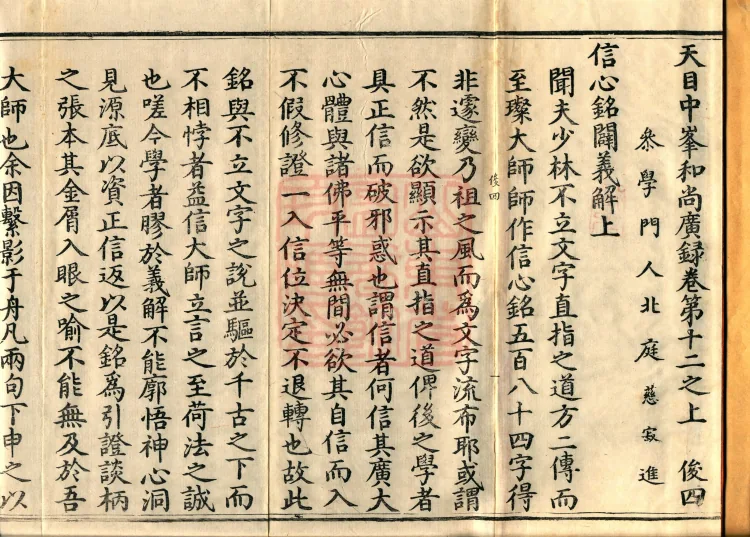 天目中峯和尚廣録卷第十二之上 俊四
叅學門人北庭慈寂進
信心銘闢義解上
聞夫少林不立文字直指之道方二傳而
至璨大師師作信心銘五百八十四字得
俊四
非遽變乃祖之風而為文字流布耶或謂
不然是欲顯示其直指之道俾後之學者
具正信而破邪惑也謂信者何信其廣大
心體與諸佛平等無間必欲其自信而入
不假修證一入信位決定不退轉也故此
銘與不立文字之說並驅於千古之下而
不相悖者益信大師立言之至荷法之誠
也嗟今學者膠於義解不能廓悟神心洞
見源底以資正信返以是銘為引證談柄
之張本其金屑入眼之喻不能無及於吾
大師也余因繫影于舟凡兩句下申之以